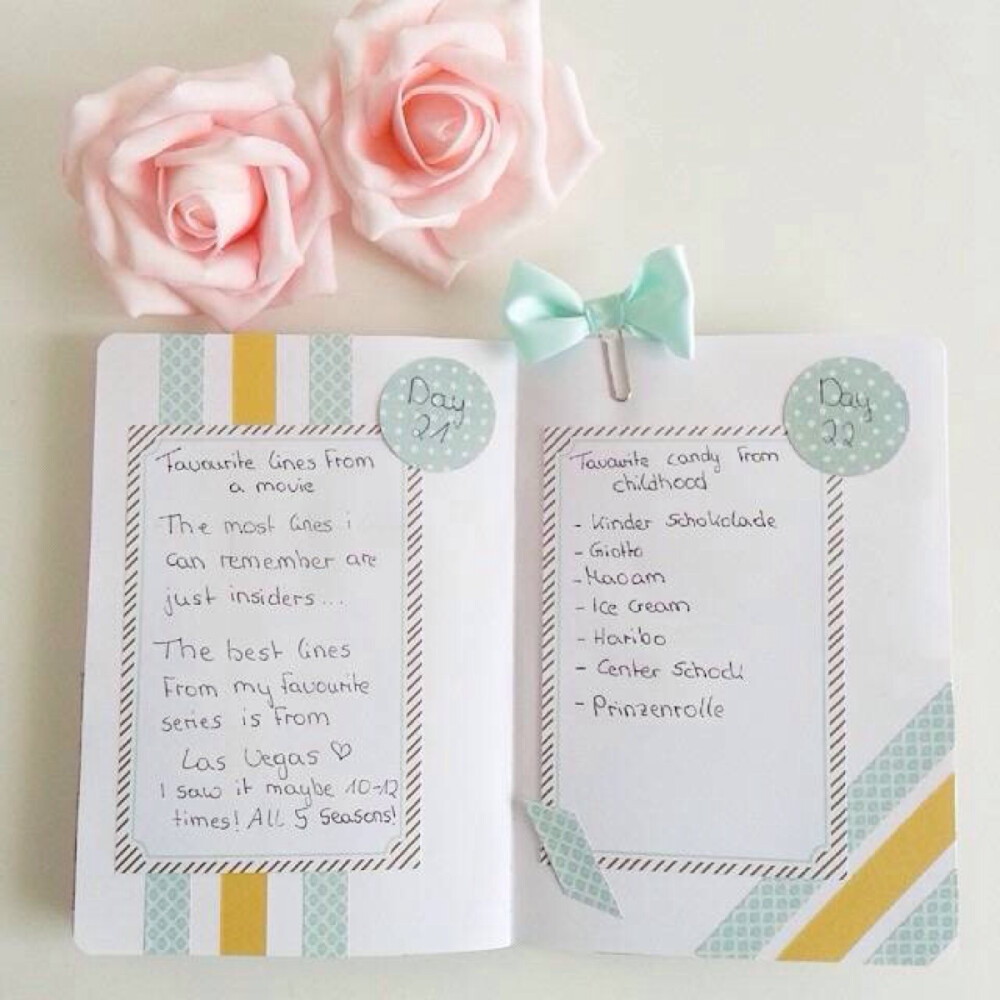 Day
21
Favourite lines From
a movie
The most lines i
can remember are
just insiders...
The best lines
From my favourite
series is From
Las Vegas ♡
I saw it maybe 10-12
times! All 5 Seasons!
Day
22
Favourite candy From
childhood
- Kinder Schokolade
- Giotto
- Maoam
- Ice Cream
- Haribo
- Center Schock
- Prinzenrolle